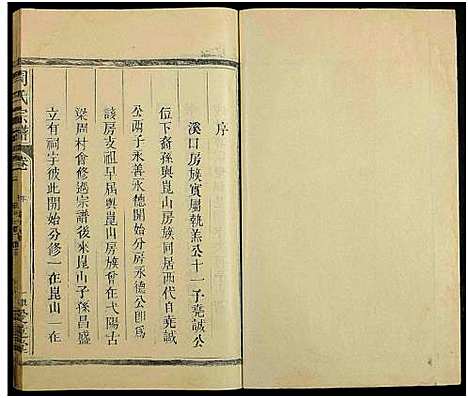 序
溪口房族實屬執羔公十一子堯誠公
位下裔孫與崑山房族同居西代自堯誠
公兩子永善永德開始分房永德公卽爲
該房支祖早屆與崑山房族會在弋陽古
梁周村會修過宗譜後來崑山子孫昌盛
立有祠宇彼此開始分修一在崑山一在
周氏宗譜
卷
序